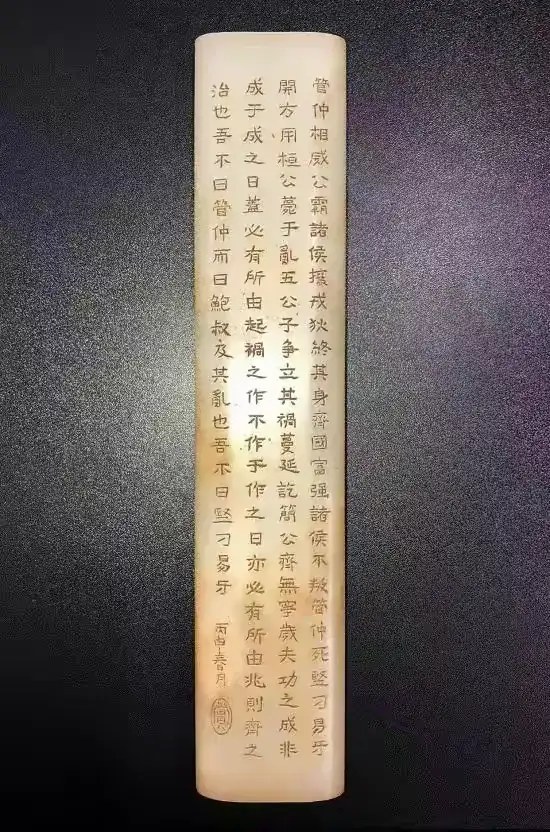 管仲相威公霸諸侯攘戎狄終其身齊國富强諸侯不敢管仲死竪刁易牙
開方用桓公薨于亂五公子爭立其禍蔓延訖簡公齊無寧歲夫功之成非
成于成之日蓋必有所由起禍之作不作于作之日亦必有所由兆則齊之
治也吾不曰管仲而曰鮑叔及其亂也吾不曰竪刁易牙
丙春月